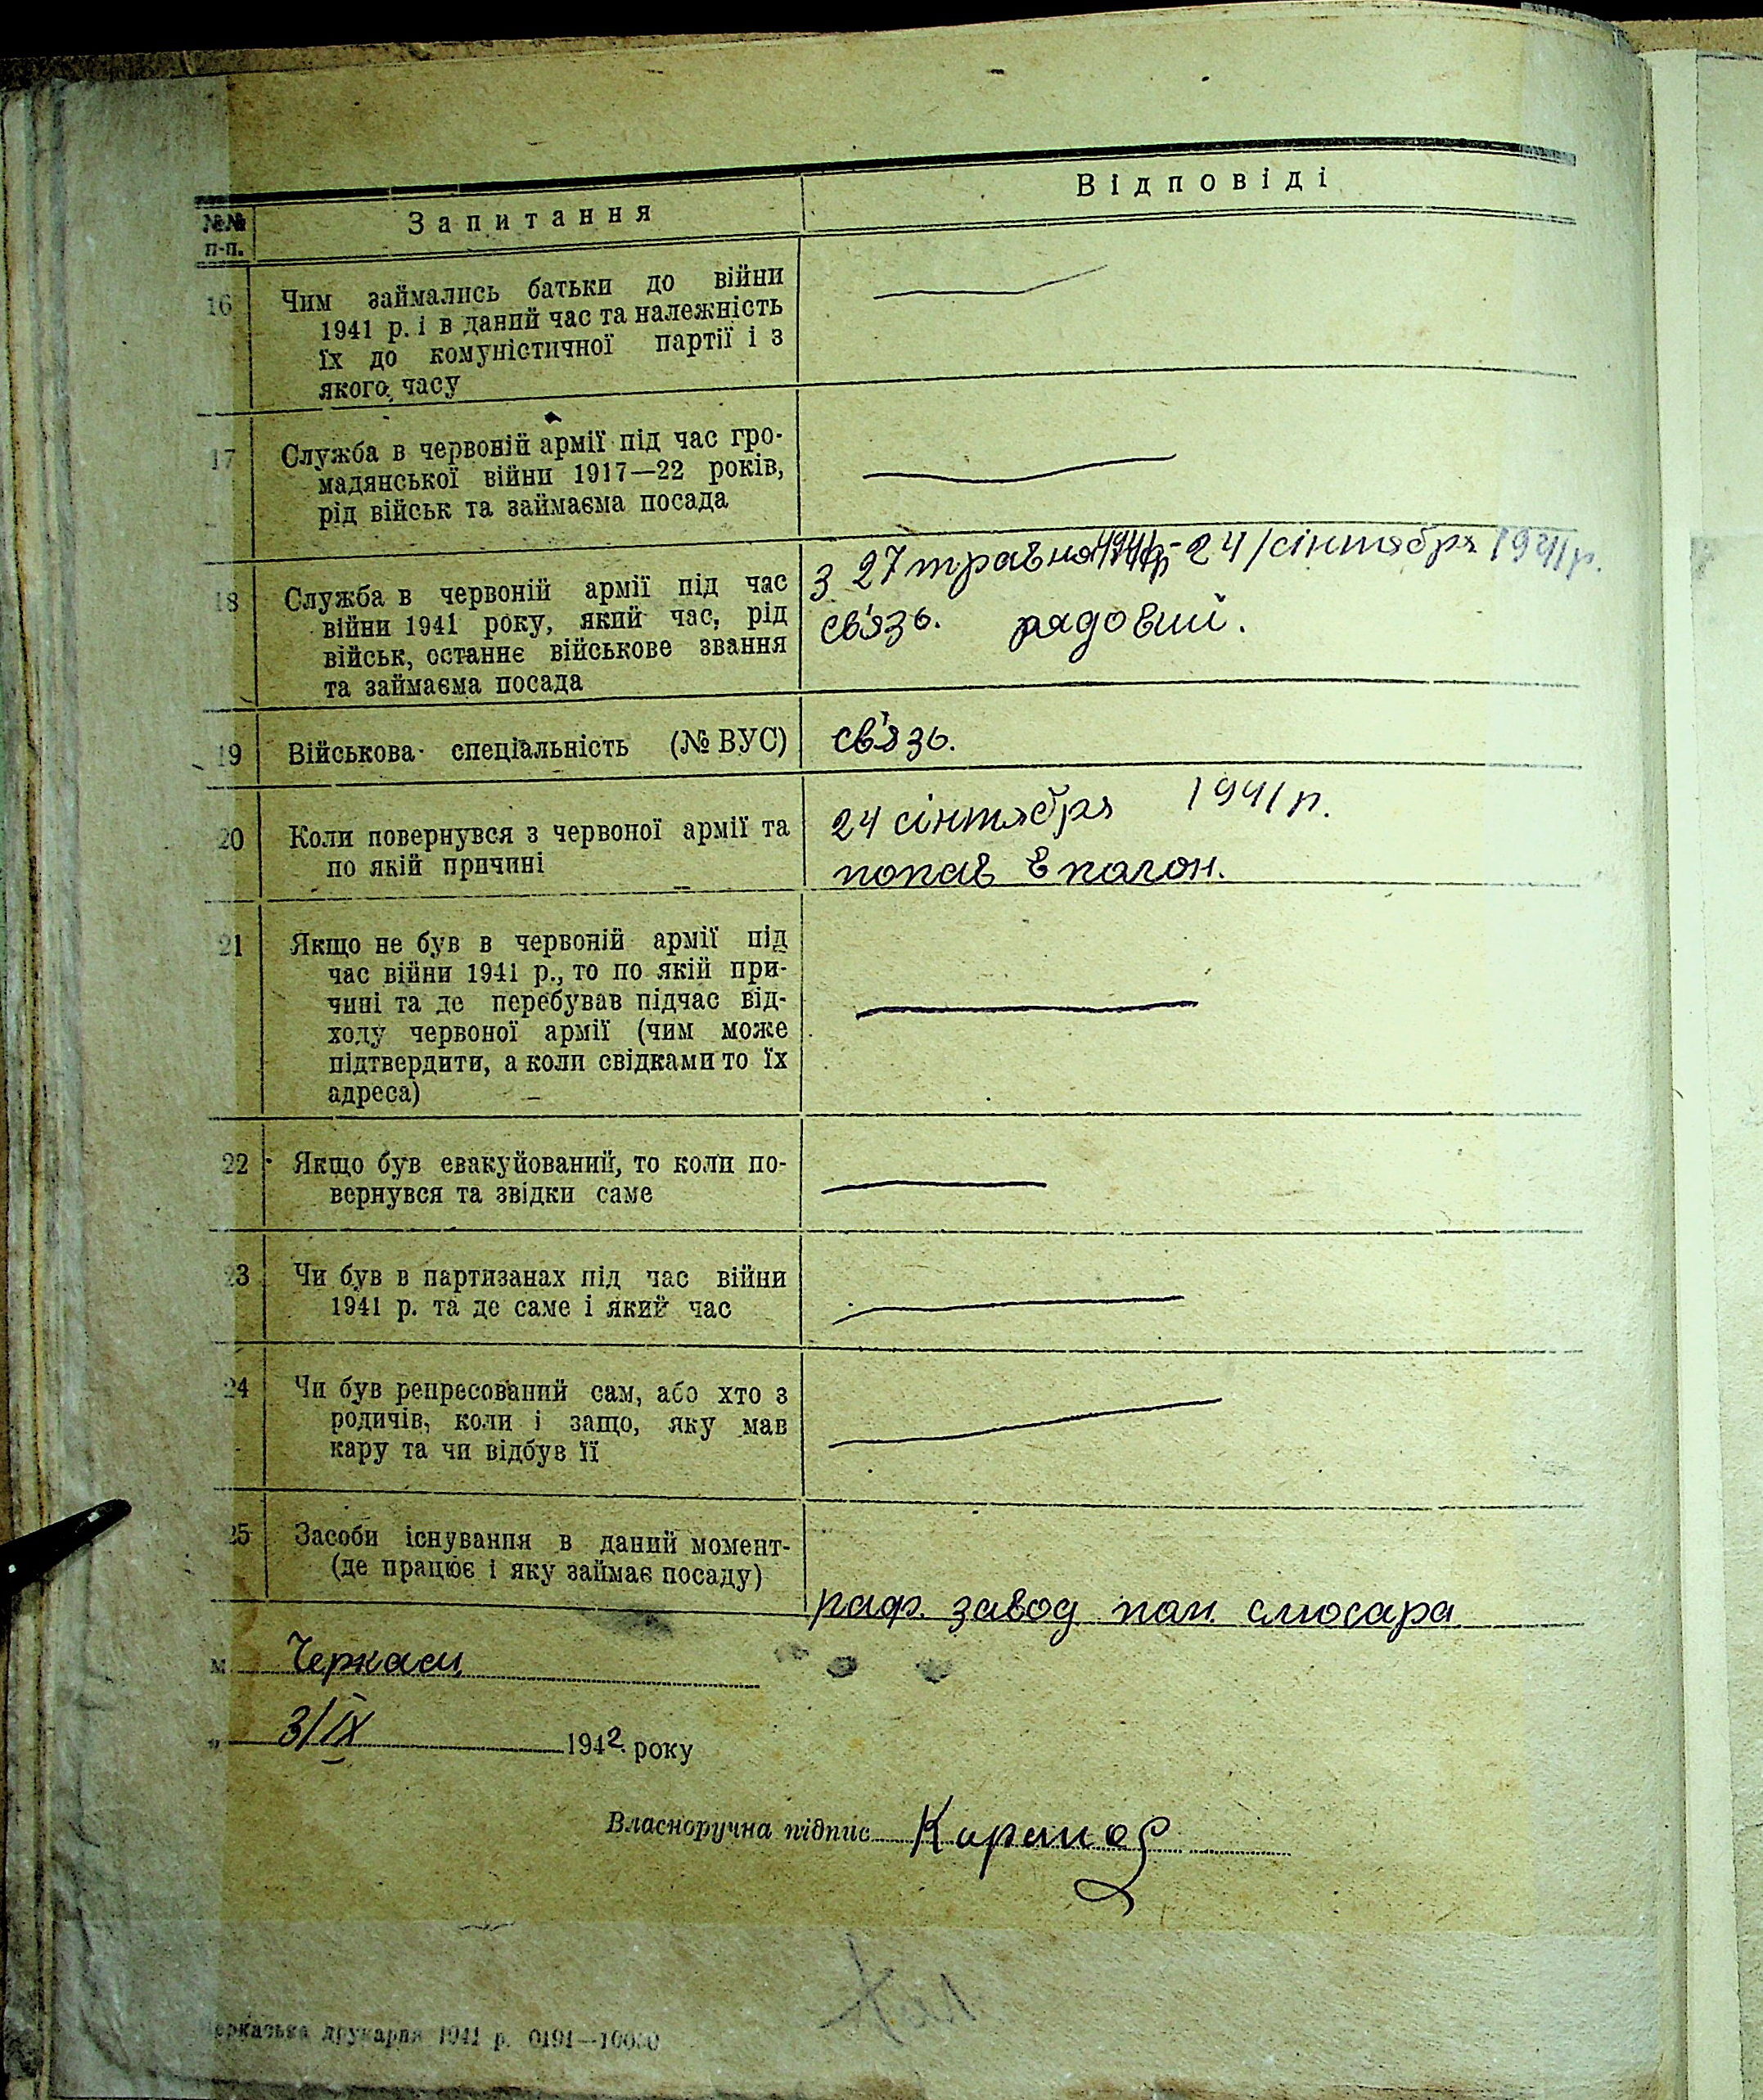 №№ п-п.
Запитання
Відповіді
16 Чим займались батьки до війни
1941 р. і в даний час та належність
їх до комуністичної партії і з
якого часу
17 Служба в червоній армії під час гро-
мадянської війни 1917—22 років,
рід військ та займаєма посада
18 Служба в червоній армії під час
війни 1941 року, який час, рід
військ, останнє військове звання
та займаєма посада
З 27 травня 1941р - 24/сінтября 1941р.
св'язь. рядовий.
19 Військова спеціальність (№ ВУС)
св'язь.
20 Коли повернувся з червоної армії та
по якій причині
24 сінтября 1941 р.
попав в полон.
21 Якщо не був в червоній армії під
час війни 1941 р., то по якій при-
чині та де перебував підчас від-
ходу червоної армії (чим може
підтвердити, а коли свідками то їх
адреса)
22 Якщо був евакуйований, то коли по-
вернувся та звідки саме
23 Чи був в партизанах під час війни
1941 р. та де саме і який час
24 Чи був репресований сам, або хто з
родичів, коли і защо, яку мав
кару та чи відбув її
25 Засоби існування в даний момент-
(де працює і яку займає посаду)
раф. завод пом. слюсара
м Черкаси
„ 3/IX 1942 року
Власноручна підпис
Черкаська друкарня 1941 р. 0191—10000